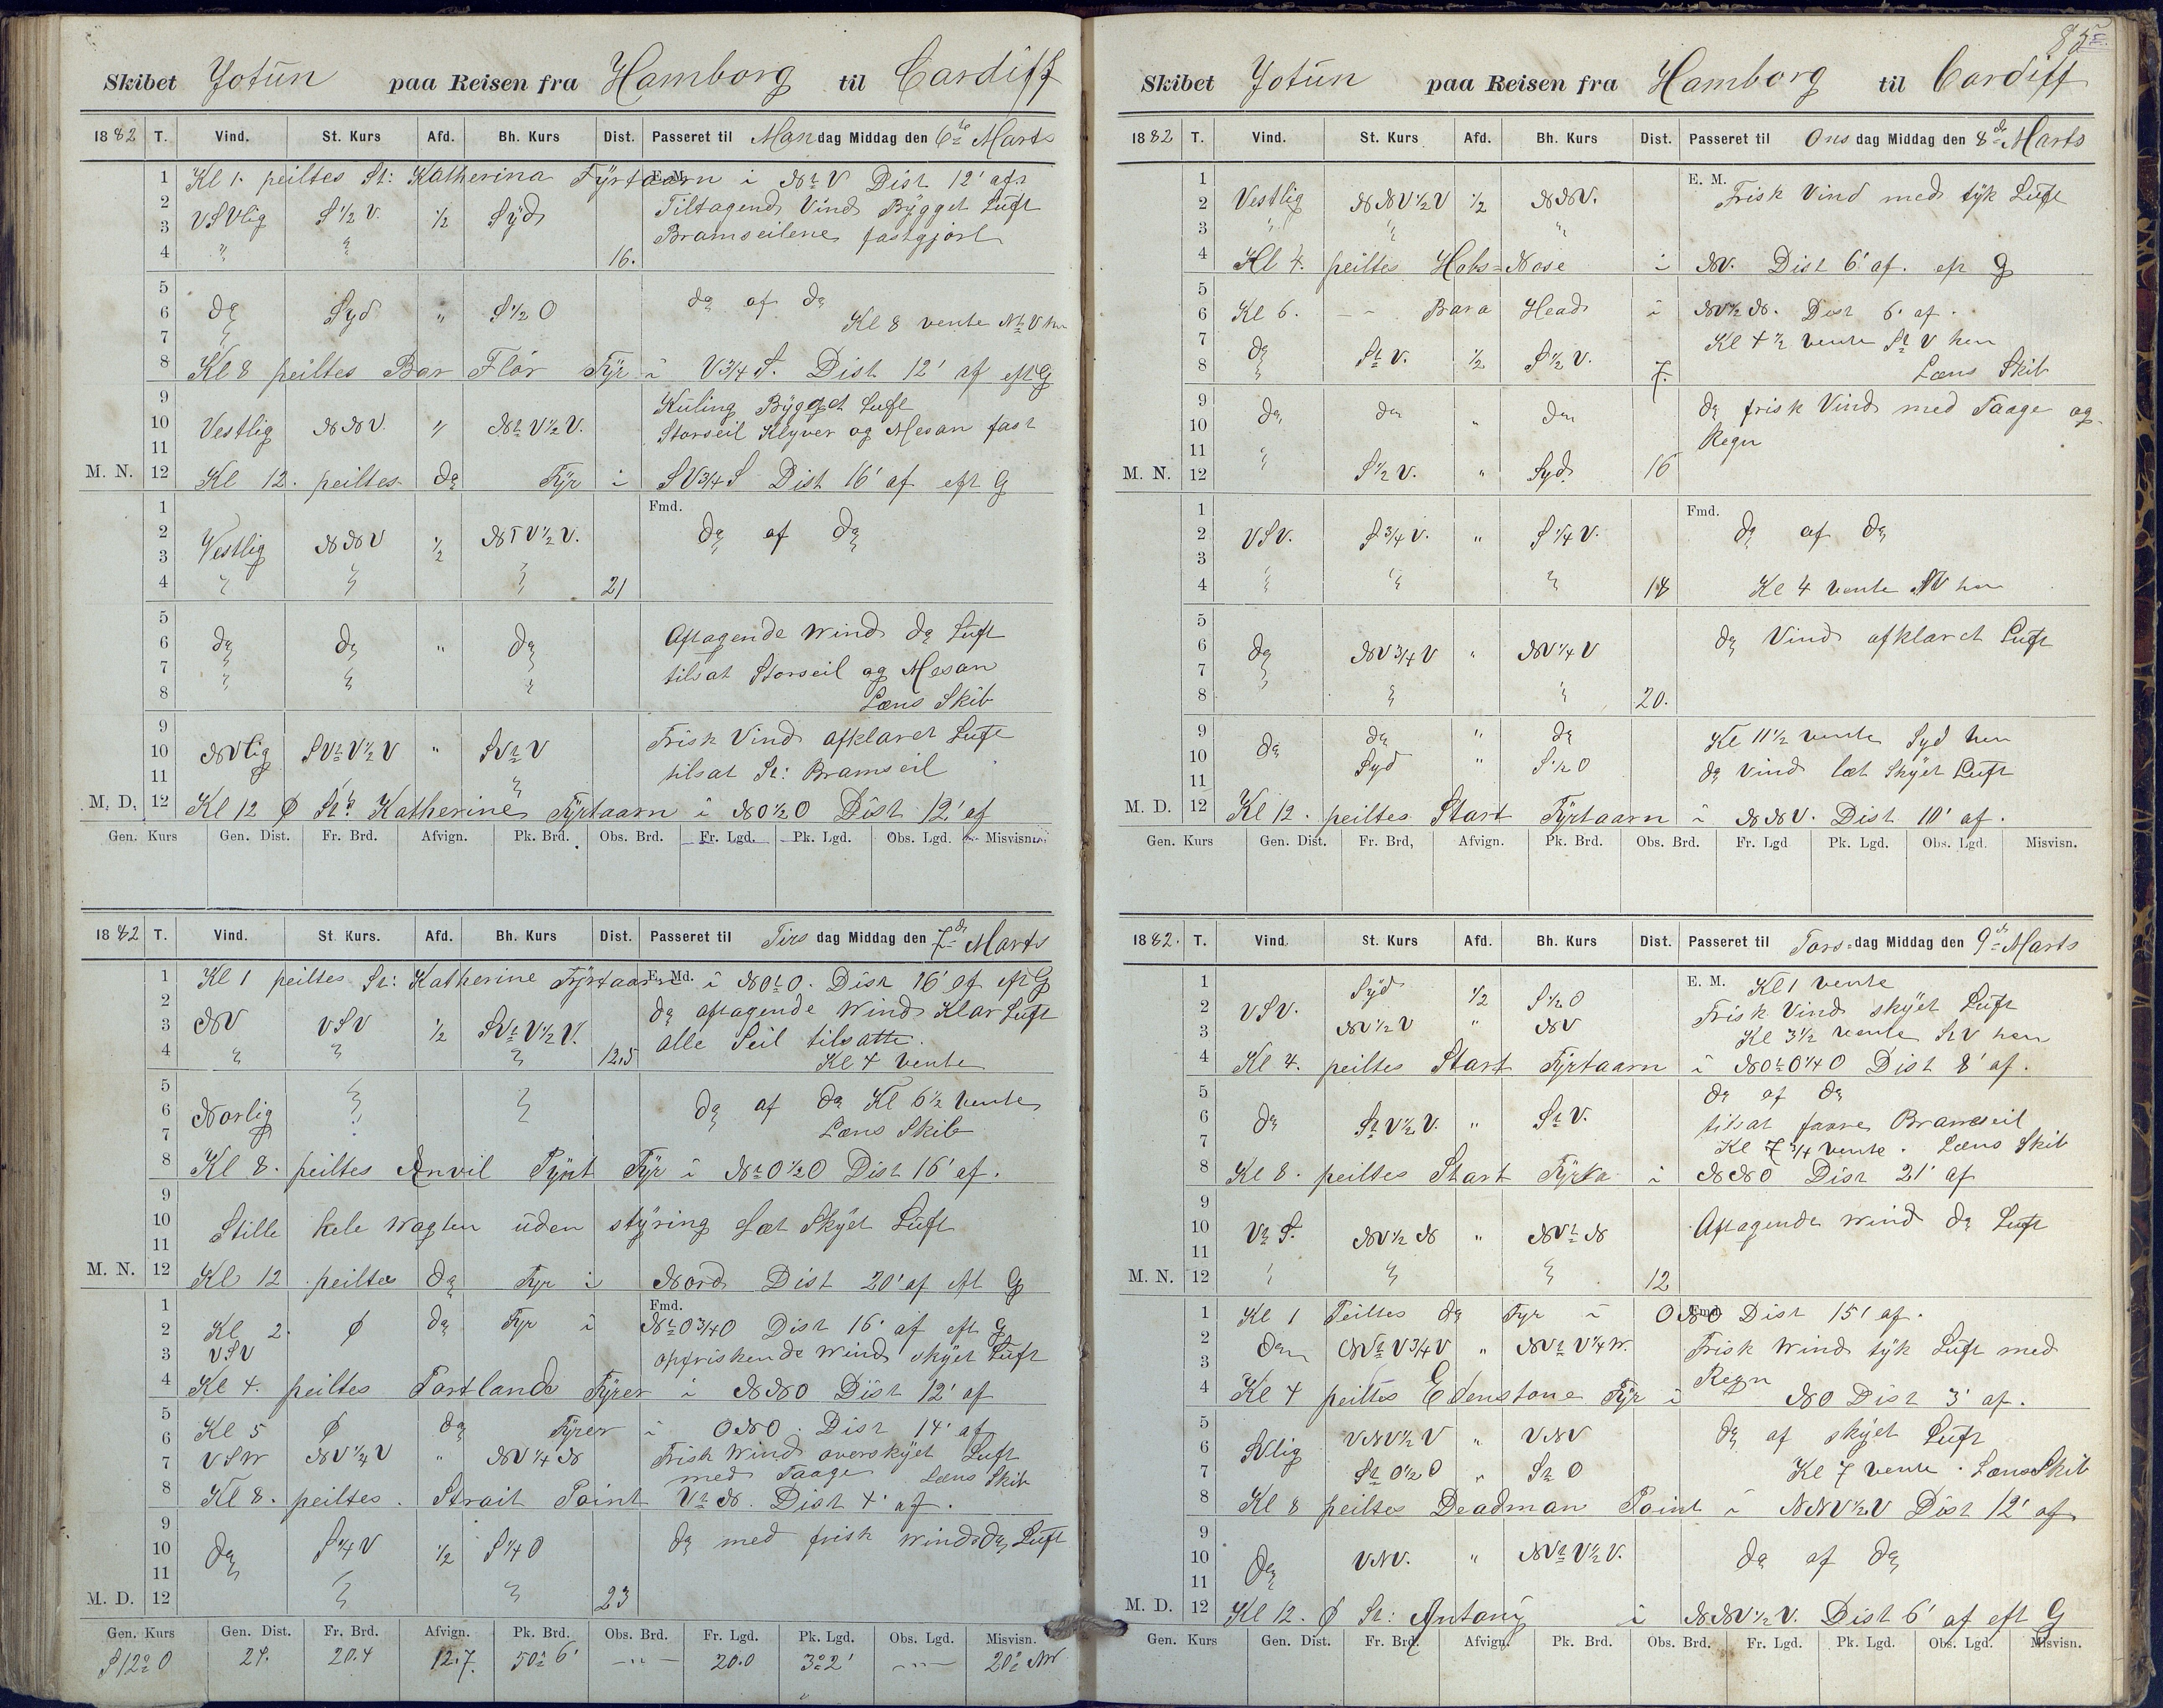 Skibet Jotün paa Reisen fra Hamborg til Cardiff
1882 T. Vind. St. Kurs Afd. Bh. Kurs Dist. Passeret til Mandag Middag den 6te Marts
1 Kl 1. peiltes St: Katherina Fÿrtaarn i NtV Dist 12' af
E. M.
2 Tiltagend Vind Bÿgget Luft
3 VSVlig S½V. ½ Sÿd Bramseilene fastgjort
4 " " 16.
5
6 do Syd " S½O do af do
7 Kl 8 vente NtV hen
8 Kl 8 peiltes Bar Flör Fÿr i V¾S. Dist 12' af eft G
9 Kuling Bÿgget Luft
10 Vestlig NNV. " NtV½V. Storseil Klyver og Mesan fast
11
M. N. 12 Kl 12. peiltes do Fÿr i SV¾S Dist 16' af eft G
1 Fmd.
2 Vestlig NNV ½ NTV½V. do af do
3
4 " " " 21
5
6 do do " do Aftagende Wind do Luft
7 " " " tilsat Storseil og Mesan
8 Læns Skib
9 Frisk Vind afklaret Luft
10 NVlig SVtV½V " SVtV
11 tilsat St: Bramseil
M. D. 12 Kl 12 φ St: Katherine Fÿrtaarn i NO½O Dist 12' af
Gen. Kurs Gen. Dist. Fr. Brd. Afvign. Pk. Brd. Obs. Brd. Fr. Lgd. Pk. Lgd. Obs. Lgd. Misvisn.
1882 T. Vind. St. Kurs. Afd. Bh. Kurs Dist. Passeret til Tirsdag Middag den 7de Marts
1 Kl 1 peiltes St: Katherine Fÿrtaarn i NOtO. Dist 16' af eft G
E. Md.
2 do aftagende Wind Klar Luft
3 NV VSV ½ SVtV½V. alle Seil tilsatte.
4 " " " 12,5 Kl 4 vente
5
6 Norlig " " do af do Kl 6½ vente
7 Læns Skib
8 Kl 8. peiltes Anvil Pÿnt Fÿr i NtO½O Dist 16' af.
9
10 Stille hele Wagten üden stÿring Læt Skÿet Lüft
11
M. N. 12 Kl 12 peiltes do Fyr i Nord Dist 20' af eft G
Fmd.
1
2 Kl 2. φ do Fyr i NtO¾O Dist 16' af eft G
3 VSV opfriskende Wind skÿet Lüft
4 Kl 4. peiltes Portlands Fÿrer i NNO Dist 12' af
5 Kl 5 φ do Fÿrer i ONO. Dist 14' af
6
7 VSW NV¼V " NV¼N Frisk Wind overskÿet Luft
med Taage Læns Skib
8 Kl 8. peiltes. Strait Point VtN. Dist 4' af.
9
10 do S¼V ½ S¼O do med frisk Wind do Luft
11
M. D. 12 " " 23
Gen. Kurs Gen. Dist. Fr. Brd. Afvign. Pk. Brd. Obs. Brd. Fr. Lgd. Pk. Lgd. Obs. Lgd. Misvisn.
S12°O 24. 20.4 12.7. 50° 6' — " — 20.0 3°2' — " — 20° NW
Skibet Jotün paa Reisen fra Hamborg til Cardiff
1882 T. Vind. St. Kurs Afd. Bh. Kurs Dist. Passeret til Onsdag Middag den 8de Marts
1 E. M.
2 Vestlig NNV½V ½ NNV. Frisk Vind med tÿk Luft
3 " " "
4 Kl 4. peiltes Hobs=Nose i NV. Dist 6' af. eft G
5
6 Kl 6. — " Bara Head i NV½N. Dist 6' af.
7 Kl 4½ vente StV hen
8 do StV. ½ S½V. 7. Læns Skib
9 do do " do do frisk Vind med Taage og
10 Regn
11
M. N. 12 " S½V. " Syd. 16
1 Fmd.
2 VSV. S¾V. " S¼V. do af do
3
4 " " " 18 Kl 4 vente NV hen
5
6 do NV¾V " NV¼V do Vind afklaret Luft
7
8 " " 20.
9 do do " do Kl 11½ vente Syd hen
10 Syd " S½O do Vind læt Skÿet Luft
11
M. D. 12 Kl 12. peiltes Start Fÿrtaarn i NNV. Dist 10' af.
Gen. Kurs Gen. Dist. Fr. Brd, Afvign. Pk. Brd. Obs. Brd. Fr. Lgd Pk. Lgd. Obs. Lgd. Misvisn.
1882. T. Vind. St. Kurs Afd. Bh. Kurs Dist. Passeret til Torsdag Middag den 9de Marts
1 Sÿd ½ S½O E. M. Kl 1 vente
2 VSV. Frisk Vind skÿet Luft
3 NV½V " NV Kl 3½ vente StV hen
4 Kl 4. peiltes Start Fÿrtaarn i NOtO¼O Dist 8' af.
5 do af do
6 do StV½V. " StV. tilsat faare Bramseil
7 Kl 7¾ vente. Læns Skib
8 Kl 8. peiltes Start i NNO Dist 21' af
9
10 VtS. NV½N " NVtN Aftagende Wind do Luft
11
M. N. 12 " " " 12
1 Kl 1 Peiltes do Fyr i ONO Dist 15' af.
Fmd.
2 do NVtV¾V " NVtV¼W. Frisk Wind tÿk Luft med
3 Regn
4 Kl 4 peiltes Edenstone Fÿr i NO Dist 3' af.
5 VNV½V " VNV do af skÿet Luft
6 SVlig
7 StO½O " StO Kl 7 vente. Læns Skib
8 Kl 8 peiltes Deadman Point i NNV½V Dist 12' af
9
10 do VNV. " NVtV½V. do af do
11
M. D. 12 Kl 12. φ St: Antonÿ i NNV½V. Dist 6' af eft G
Gen. Kurs Gen. Dist. Fr. Brd. Afvign. Pk. Brd. Obs. Brd. Fr. Lgd. Pk. Lgd. Obs. Lgd. Misvisn.